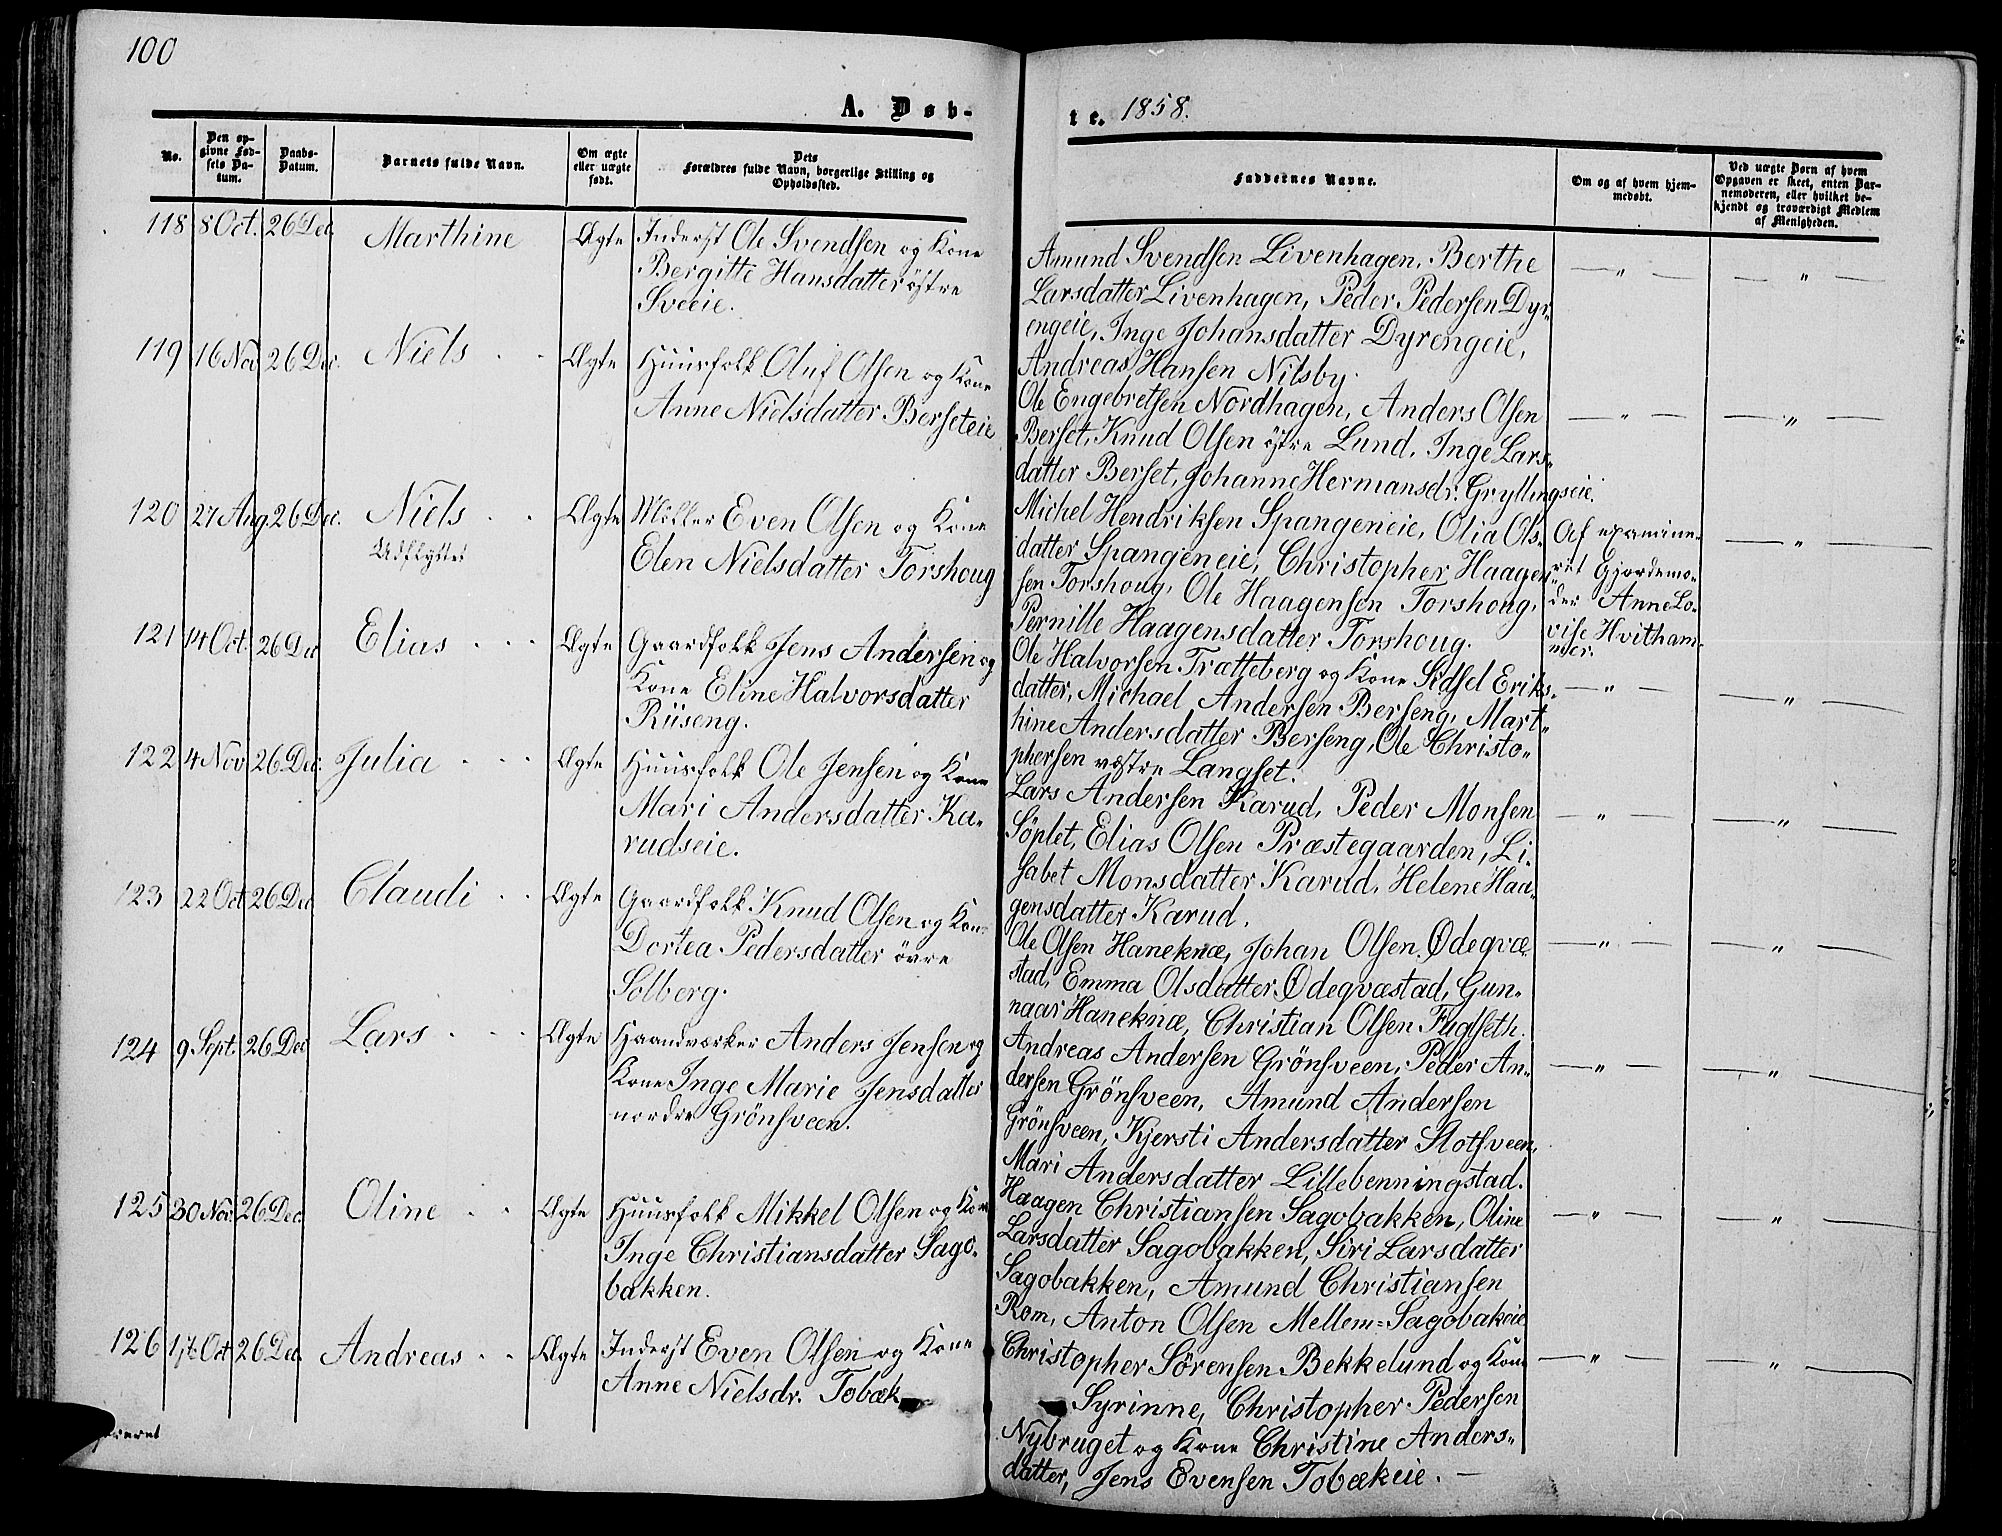 100
A. Døb-
te. 1858.
No.
Den op-
givne Fød-
sels Da-
tum.
Daabs-
Datum.
Barnets fulde Navn.
Om ægte
eller uægte
født.
Dets
Forældres fulde Navn, borgerlige Stilling og
Opholdssted.
Faddernes Navne.
Om og af hvem hjem-
medøbt.
Ved uægte Børn af hvem
Opgaven er skeet, enten Bar-
nemoderen, eller hvilket be-
kjendt og troværdigt Medlem
af Menigheden.
118 8 Oct. 26 Dec. Marthine Ægte Inderst Ole Svendsen og Kone
Bergitte Hansdatter östre
Sveeie.
Amund Svendsen Livenhagen, Berthe — " — — " —
Larsdatter Livenhagen, Peder Pedersen Dyr-
engeie, Inge Johansdatter Dyrengeie,
Andreas Hansen Nilsby.
119 16 Nov 26 Dec. Niels Ægte Huusfolk Oluf Olsen og Kone
Anne Nielsdatter Berseteie
Ole Engebretsen Nordhagen, Anders Olsen — " — — " —
Berset, Knud Olsen östre Lund, Inge Lars-
datter Berset, Johanne Hermansdr. Gryllingseie.
120 27 Aug 26 Dec. Niels Ægte Möller Even Olsen og Kone
Udflyttet
Elen Nielsdatter Torshoug
Michel Hendriksen Spangeneie, Olia Ols-
datter Spangeneie, Christopher Haagen-
sen Torshoug, Ole Haagensen Torshoug,
Pernille Haagensdatter Torshoug.
Af examine-
ret Gjordemo-
der Anne Lo-
vise Hvitham-
mer.
— " —
121 14 Oct. 26 Dec Elias Ægte Gaardfolk Jens Andersen og
Kone Eline Halvorsdatter
Riiseng.
Ole Halvorsen Tratteberg og Kone Sidsel Eriks-
datter, Michael Andersen Berseng, Mart- — " — — " —
hine Andersdatter Berseng, Ole Christo-
phersen vestre Langset.
122 4 Nov 26 Dec. Julia Ægte Huusfolk Ole Jensen og Kone
Mari Andersdatter Ka-
rudseie.
Lars Andersen Karud, Peder Monsen — " — — " —
Söplet, Elias Olsen Præstegaarden, Li-
sabet Monsdatter Karud, Helene Haa-
gensdatter Karud.
123 22 Oct 26 Dec. Claudi Ægte Gaardfolk Knud Olsen og Kone
Dortea Pedersdatter övre
Solberg.
Ole Olsen Haneknæ, Johan Olsen Ødeqvæ- — " — — " —
stad, Emma Olsdatter Ødeqvæstad, Gun-
naar Haneknæ, Christian Olsen Fuglseth.
124 9 Sept. 26 Dec Lars Ægte Haandværker Anders Jensen og
Kone Inge Marie Jensdatter
nordre Grönsveen.
Andreas Andersen Grönsveen, Peder An- — " — — " —
dersen Grönsveen, Amund Andersen
Grönsveen, Kjersti Andersdatter Slotsveen,
Mari Andersdatter Lillebenningstad.
125 30 Nov. 26 Dec. Oline Ægte Huusfolk Mikkel Olsen og Kone
Inge Christiansdatter Sago-
bakken.
Haagen Christiansen Sagobakken, Oline — " — — " —
Larsdatter Sagobakken, Siri Larsdatter
Sagobakken, Amund Christiansen
Rom, Anton Olsen Mellem-Sagobakeie
126 17 Oct 26 Dec. Andreas Ægte Inderst Even Olsen og Kone
Anne Nielsdr. Tobæk
Christopher Sörensen Bekkelund og Kone — " — — " —
Syrinne, Christopher Pedersen
Nybruget og Kone Christine Anders-
datter, Jens Evensen Tobækeie. —